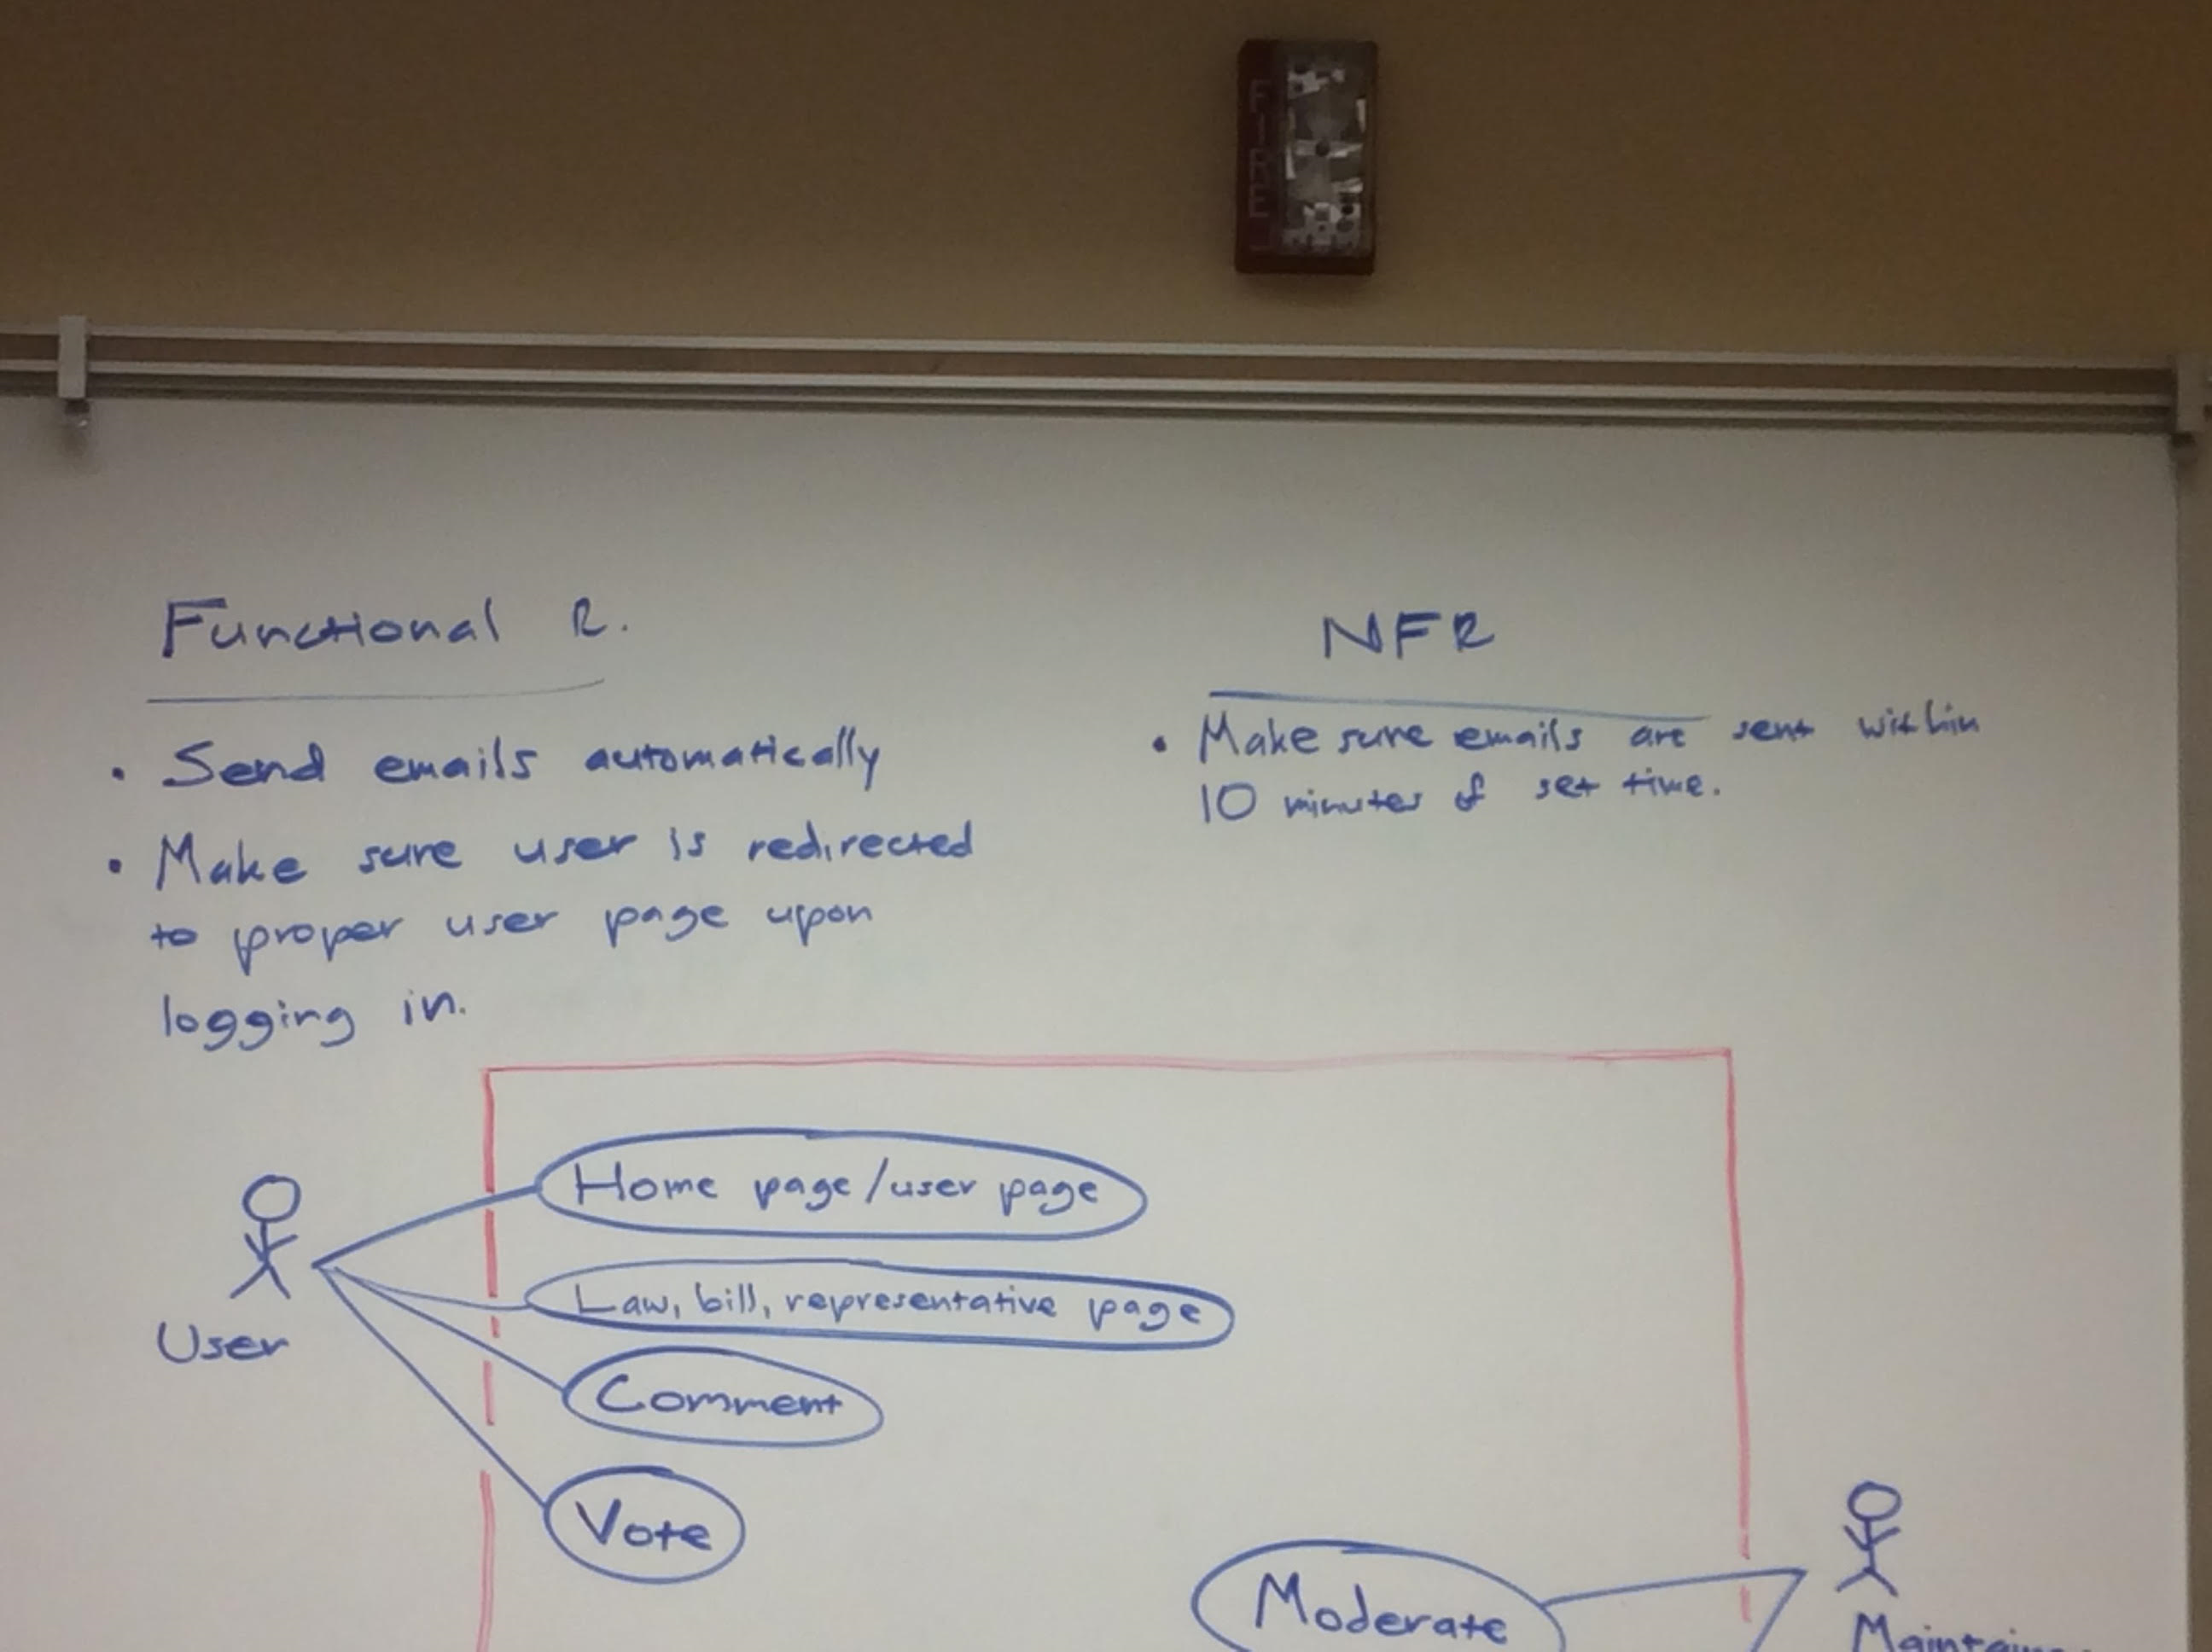 FIRE
Functional R.
• Send emails automatically
• Make sure user is redirected
to proper user page upon
logging in.
NFR
• Make sure emails are sent within
10 minutes of set time.
Home page/user page
Law, bill, representative page
User
Comment
Vote
Moderate